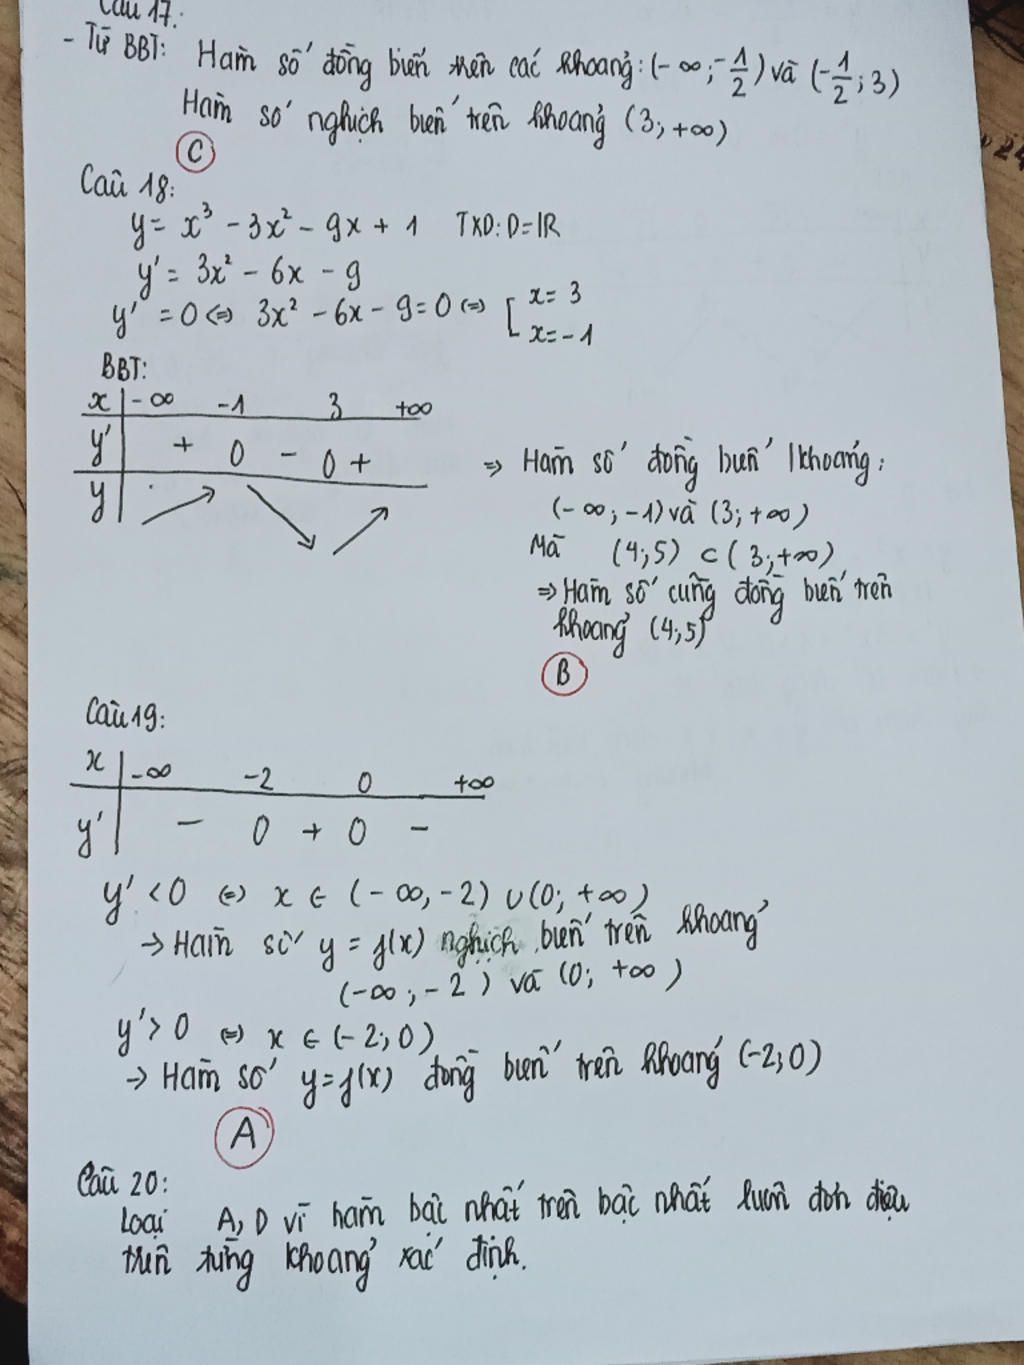 Câu 17:
- Từ BBT: Hàm số đồng biến trên các khoảng: (-∞; -1/2) và (-1/2; 3)
Hàm số nghịch biến trên khoảng (3; +∞)
C
Câu 18:
y = x³ - 3x² - 9x + 1 TXD: D = ℝ
y' = 3x² - 6x - 9
y' = 0 ⇔ 3x² - 6x - 9 = 0 ⇔ [ x = 3
x = -1
BBT:
x | -∞ -1 3 +∞
y' | + 0 - 0 +
y | ↗ ↘ ↗
⇒ Hàm số đồng biến / khoảng:
(-∞; -1) và (3; +∞)
Mà (4; 5) ⊂ (3; +∞)
⇒ Hàm số cũng đồng biến trên
khoảng (4; 5)
B
Câu 19:
x | -∞ -2 0 +∞
y' | - 0 + 0 -
y' < 0 ⇔ x ∈ (-∞, -2) ∪ (0; +∞)
→ Hàm số y = f(x) nghịch biến trên khoảng
(-∞; -2) và (0; +∞)
y' > 0 ⇔ x ∈ (-2; 0)
→ Hàm số y = f(x) đồng biến trên khoảng (-2; 0)
A
Câu 20:
Loại A, D vì hàm bậc nhất trên bậc nhất luôn đơn điệu
trên từng khoảng xác định.